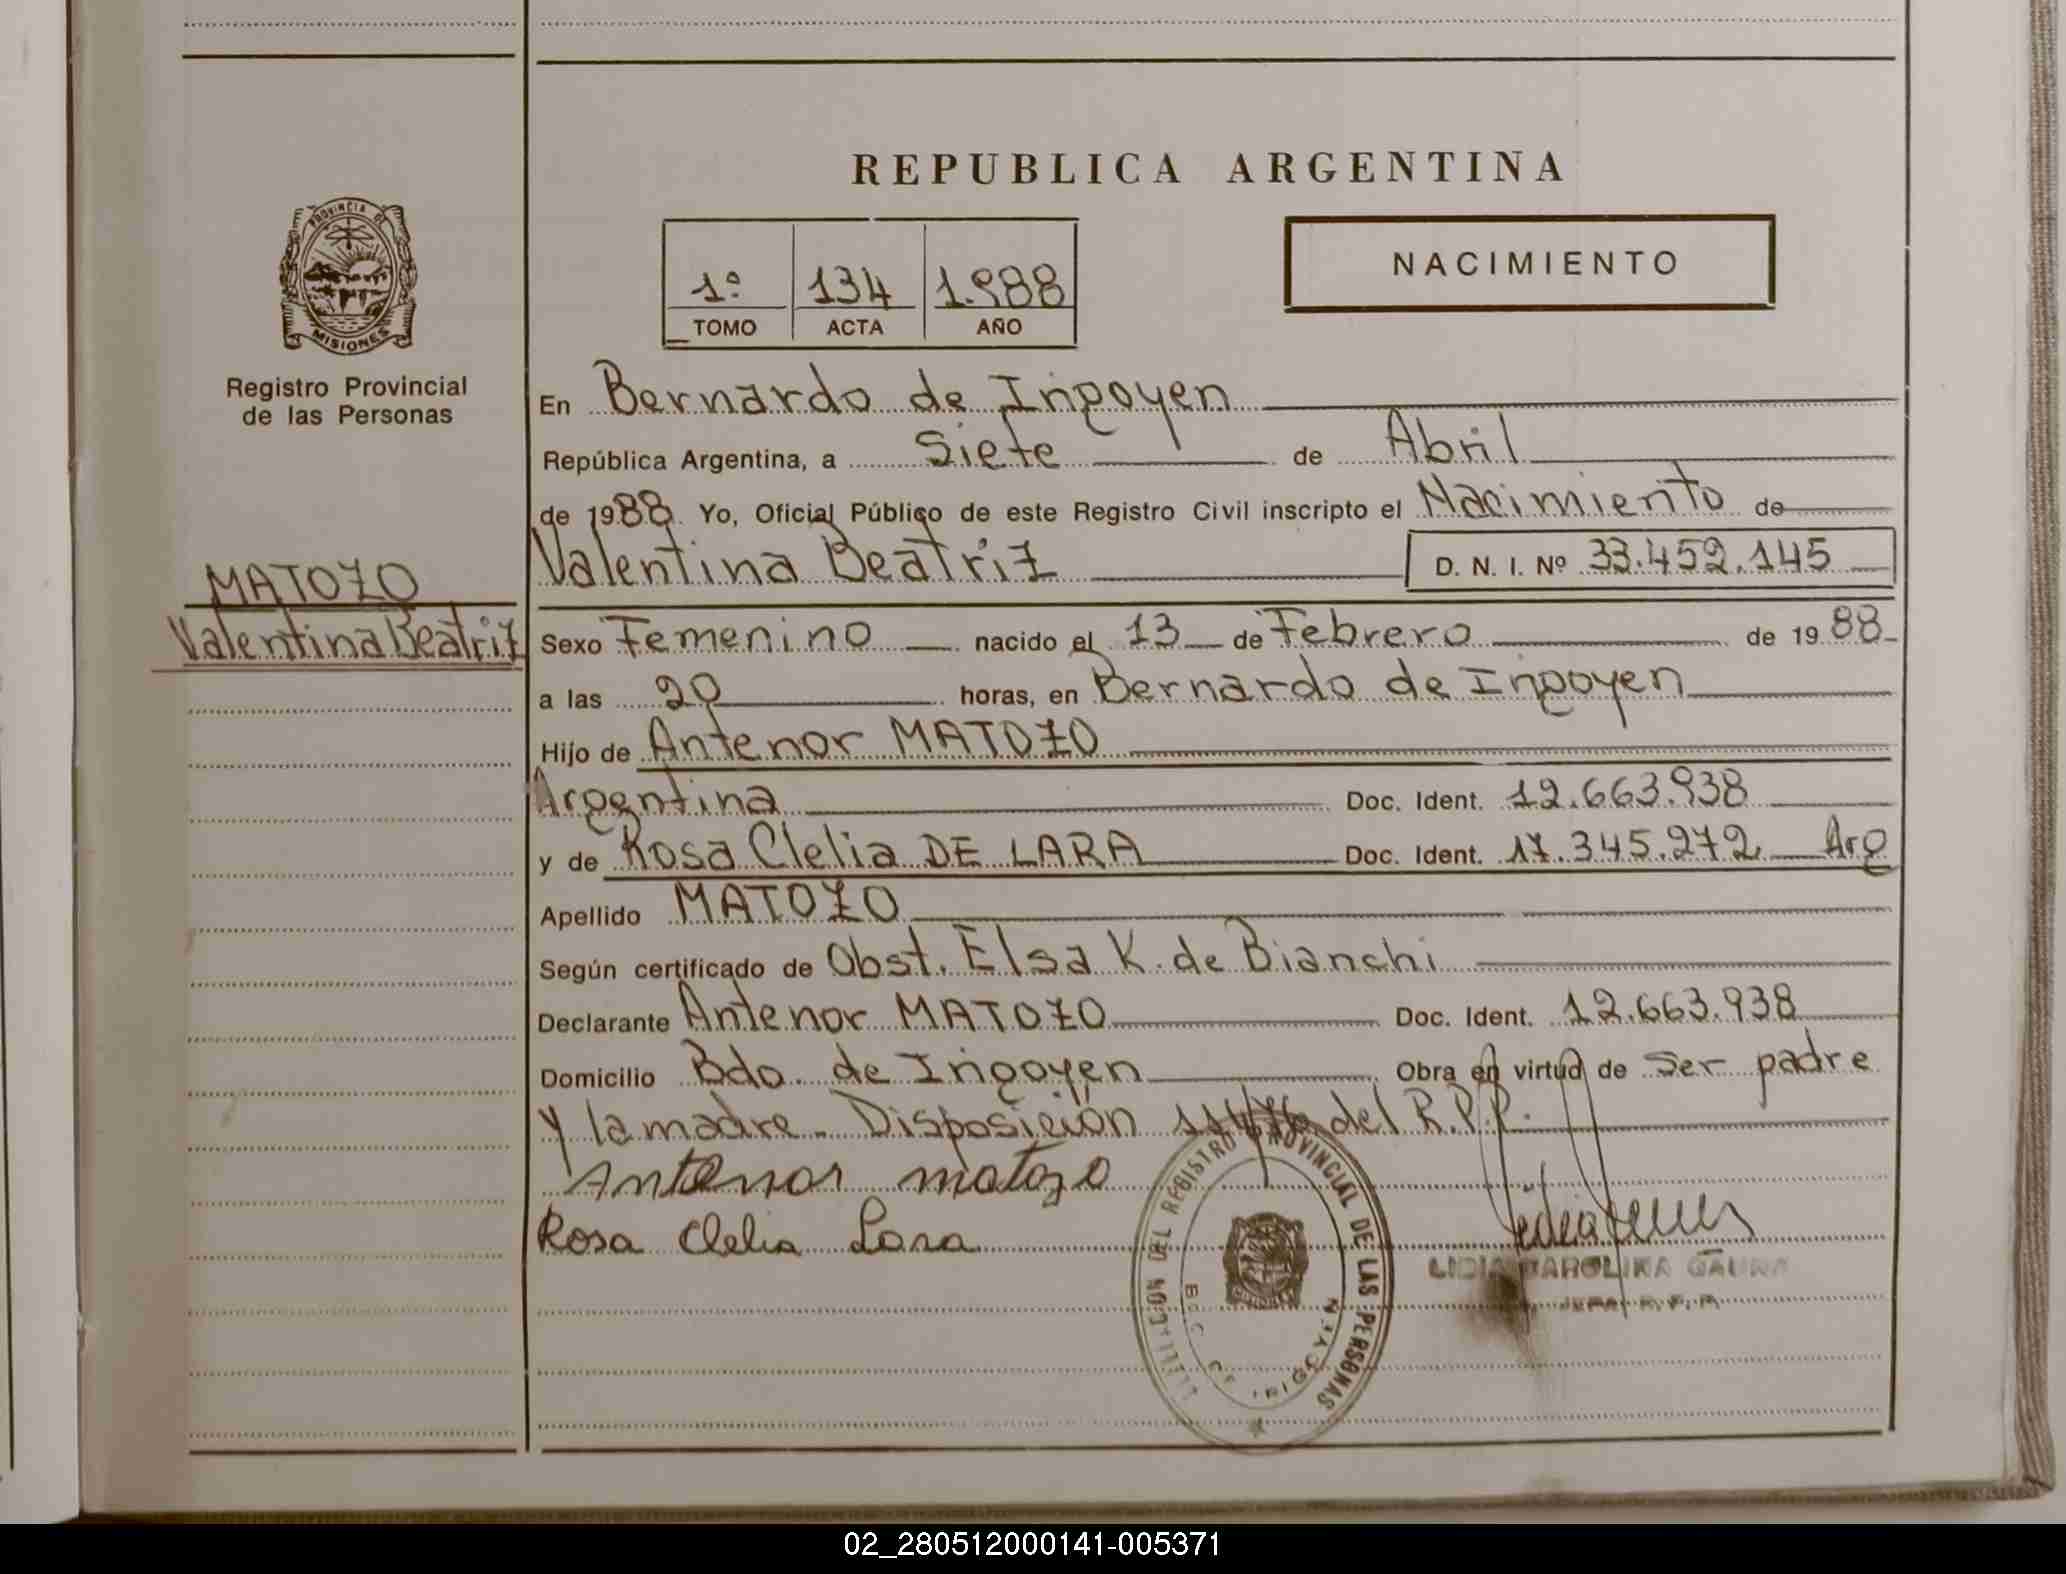 REPUBLICA ARGENTINA
PROVINCIA DE
MISIONES
Registro Provincial
de las Personas
1º 134 1.988
TOMO ACTA AÑO
NACIMIENTO
En Bernardo de Irigoyen
República Argentina, a Siete de Abril
de 1988. Yo, Oficial Público de este Registro Civil inscripto el Nacimiento de
Valentina Beatriz D. N. I. Nº 33.452.145
MATOZO
Valentina Beatriz
Sexo Femenino nacido el 13 de Febrero de 1988
a las 20 horas, en Bernardo de Irigoyen
Hijo de Antenor MATOZO
Argentina Doc. Ident. 12.663.938
y de Rosa Clelia DE LARA Doc. Ident. 17.345.272 Arg
Apellido MATOZO
Según certificado de Obst. Elsa K. de Bianchi
Declarante Antenor MATOZO Doc. Ident. 12.663.938
Domicilio Bdo. de Irigoyen Obra en virtud de ser padre
y la madre. Disposición del R.P.P.
Antenor matozo
Rosa Clelia Lara
DEL REGISTRO PROVINCIAL DE LAS PERSONAS
IRIGOYEN
LIDIA CAROLINA
02_280512000141-005371